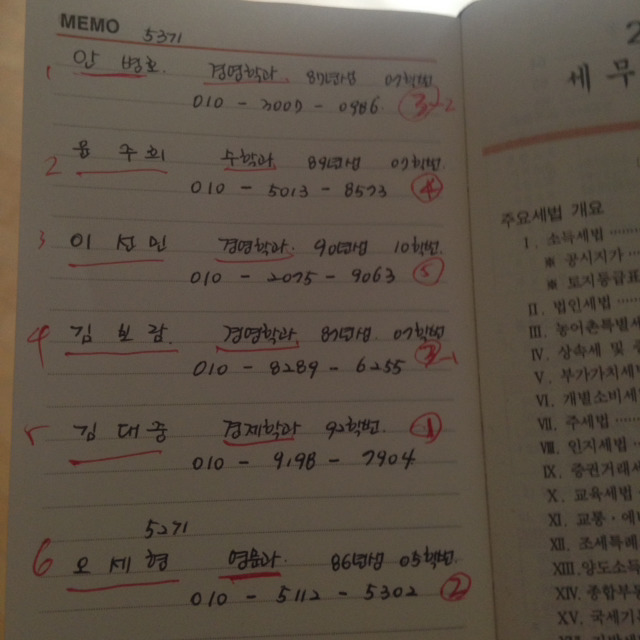 MEMO 5371
1 안 병호. 경영학과. 87년생 07학번
010 - 3009 - 0986 ③-2
2 용 주희 수학과 89년생 07학번
010 - 5013 - 8573 ④
3 이 선민 경영학과. 90년생 10학번.
010 - 2075 - 9063 ⑤
4 김 보람. 경영학과 87년생 07학번
010 - 8289 - 6255 ③-1
5 김 대중 경제학과 92학번. ①
010 - 9198 - 7904
5271
6 오 세형 영문과. 86년생 05학번.
010 - 5112 - 5302 ②
2
세 무
주요세법 개요
Ⅰ. 소득세법
※ 공시지가
※ 토지등급표
Ⅱ. 법인세법
Ⅲ. 농어촌특별세
Ⅳ. 상속세 및 증
Ⅴ. 부가가치세법
Ⅵ. 개별소비세
Ⅶ. 주세법
Ⅷ. 인지세법
Ⅸ. 증권거래세
Ⅹ. 교육세법
XI. 교통·에너
XII. 조세특례
XIII. 양도소득
XIV. 종합부동
XV. 국세기